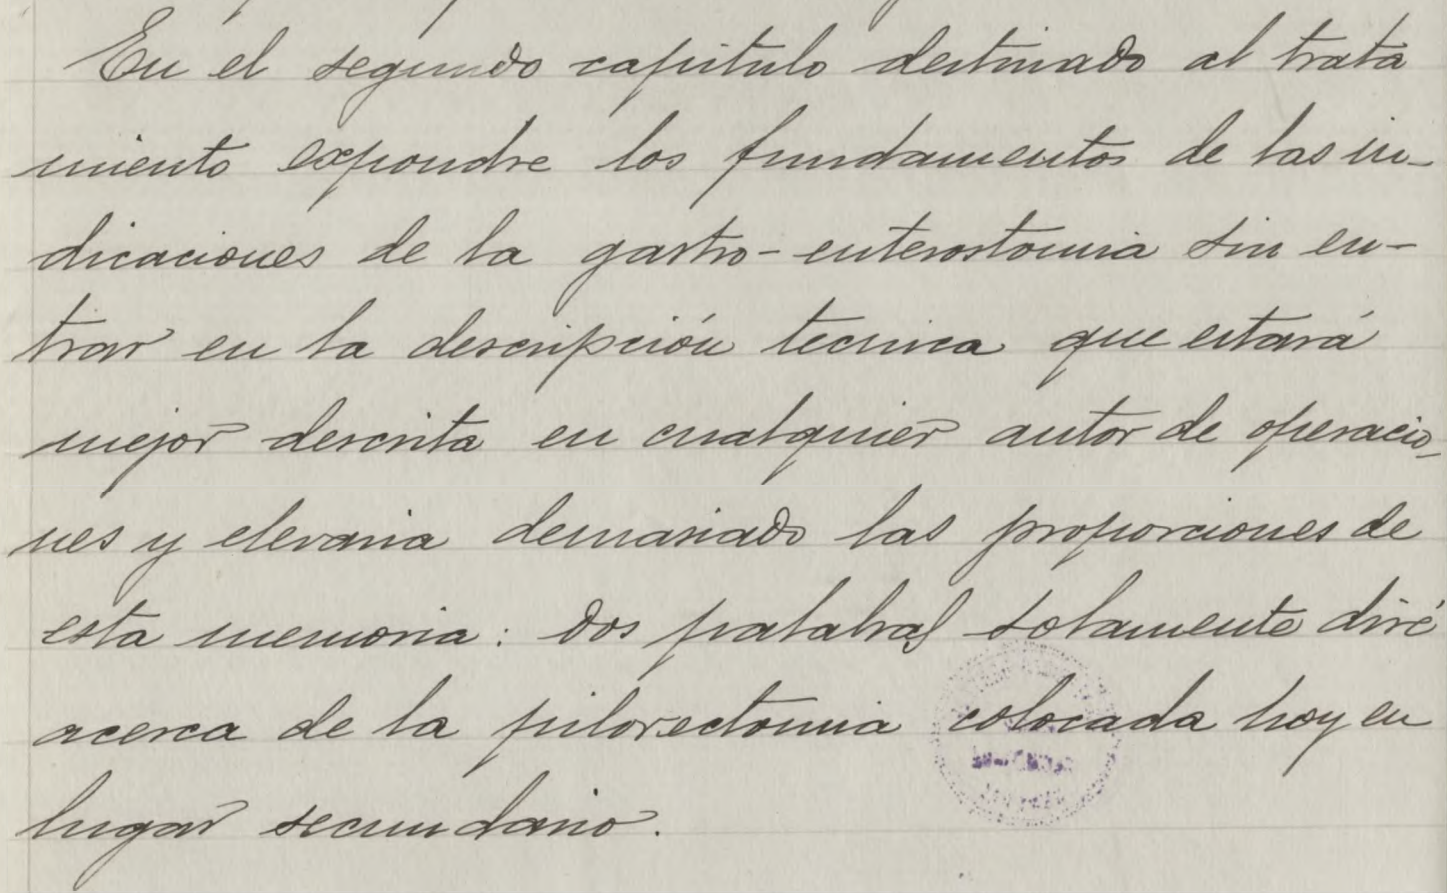 En el segundo capitulo destinado al trata
miento expondre los fundamentos de las in-
dicaciones de la gastro-enterostomia sin en-
trar en la descripción tecnica que estará
mejor descrita en cualquier autor de operacio-
nes y elevaria demasiado las proporciones de
esta memoria: dos palabras solamente diré
acerca de la pilorectomia colocada hoy en
lugar secundario.